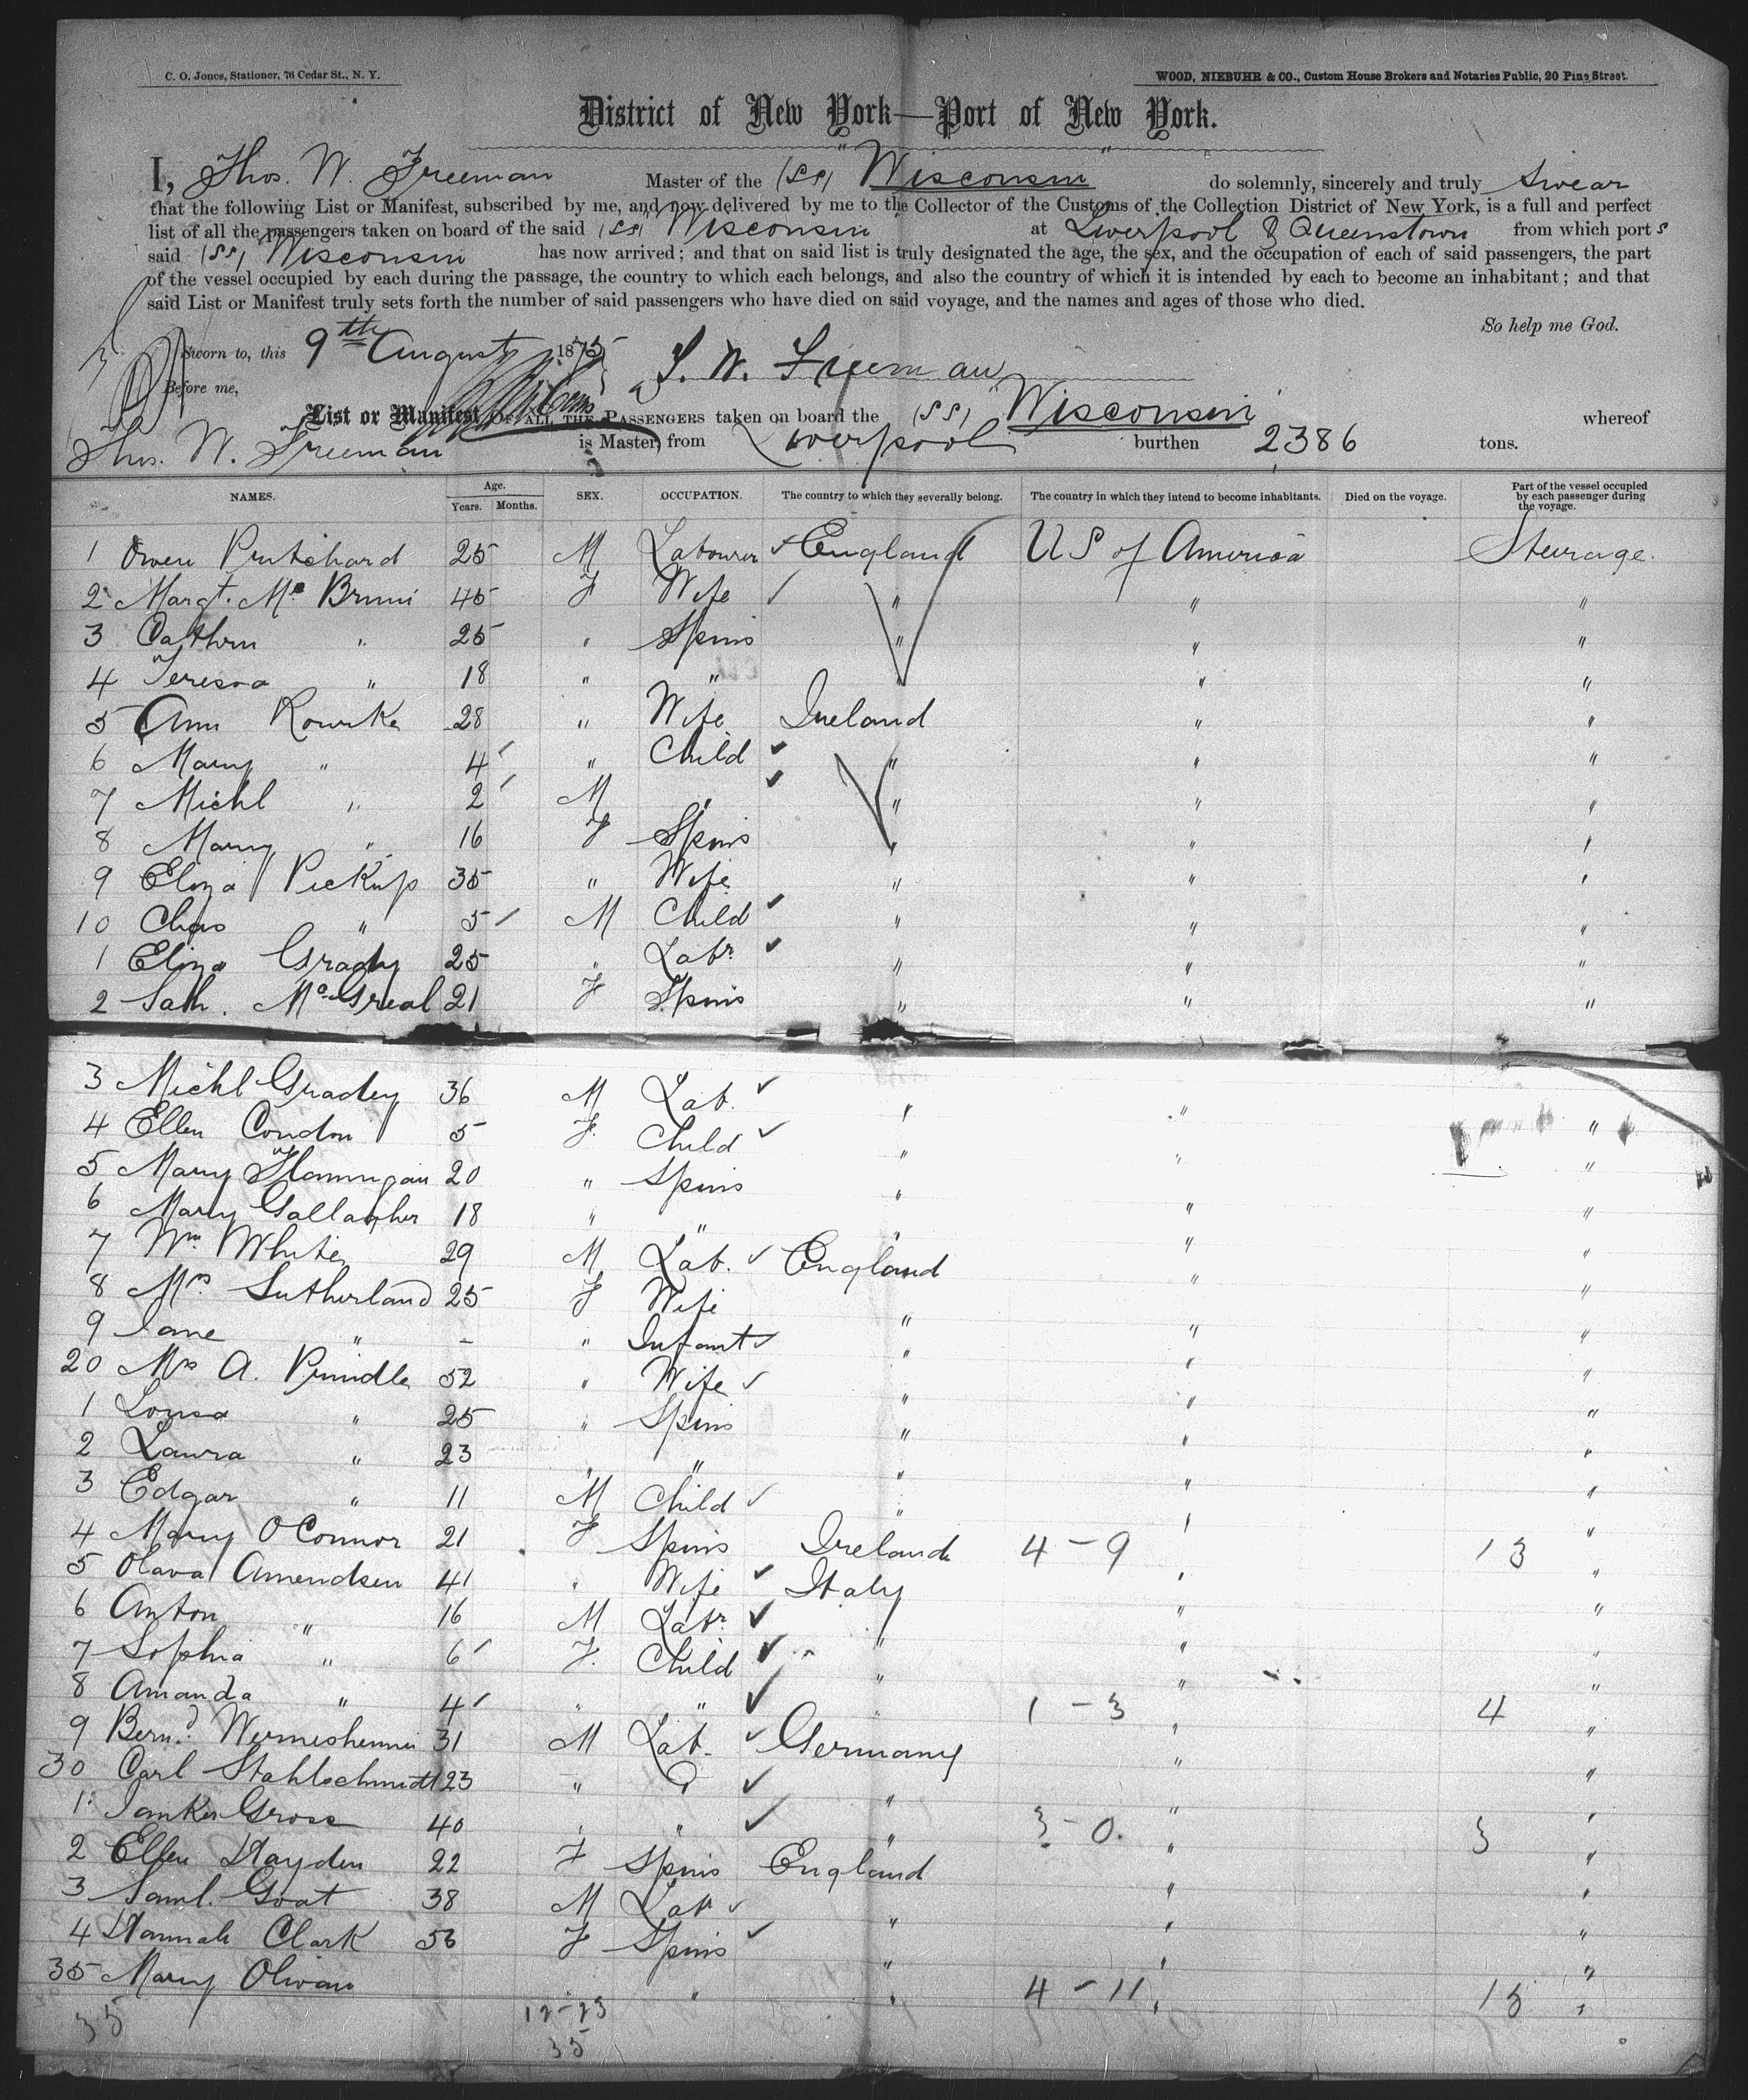 C. O. Jones, Stationer, 76 Cedar St., N. Y.
WOOD, NIEBUHR & CO., Custom House Brokers and Notaries Public, 20 Pine Street.
District of New York—Port of New York.
I, Thos. W. Freeman Master of the (SS) Wisconsin do solemnly, sincerely and truly swear
that the following List or Manifest, subscribed by me, and now delivered by me to the Collector of the Customs of the Collection District of New York, is a full and perfect
list of all the passengers taken on board of the said (SS) Wisconsin at Liverpool & Queenstown from which port s
said (SS) Wisconsin has now arrived; and that on said list is truly designated the age, the sex, and the occupation of each of said passengers, the part
of the vessel occupied by each during the passage, the country to which each belongs, and also the country of which it is intended by each to become an inhabitant; and that
said List or Manifest truly sets forth the number of said passengers who have died on said voyage, and the names and ages of those who died.
So help me God.
Sworn to, this 9th August 1875
T. W. Freeman
Before me,
List or Manifest OF ALL THE PASSENGERS taken on board the (SS) Wisconsin whereof
Thos. W. Freeman is Master, from Liverpool burthen 2386 tons.
NAMES. Age. Years. Months. SEX. OCCUPATION. The country to which they severally belong. The country in which they intend to become inhabitants. Died on the voyage. Part of the vessel occupied by each passenger during the voyage.
1 Owen Pritchard 25 M Labourer England US of America Steerage.
2 Margt. Mc 45 F Wife " " "
3 Cathrn " 25 " Spins " " "
4 Teresa " 18 " " " " "
5 Ann Rourke 28 " Wife Ireland " "
6 Mary " 4 " Child " " "
7 Michl " 2 M " " " "
8 Mary " 16 F Spins " " "
9 Eliza Pickup 35 " Wife " " "
10 Chas " 5 M Child " " "
1 Eliza Grady 25 " Labr " " "
2 Sah. McGreal 21 F Spins " " "
3 Michl Gradey 36 M Lab. " " "
4 Ellen Condon 5 F. Child " " "
5 Mary Flannigan 20 " Spins " " "
6 Mary Gallagher 18 " " " " "
7 Wm White 29 M Lab. England " "
8 Mrs Sutherland 25 F Wife " " "
9 Jane " - " Infant " " "
20 Mrs A. Prindle 52 " Wife " " "
1 Louisa " 25 " Spins " " "
2 Laura " 23 " " " " "
3 Edgar " 11 M Child " " "
4 Mary O'Connor 21 F Spins Ireland 4 - 9 " 13 "
5 Olava Amendsen 41 " Wife Italy " "
6 Anton " 16 M Labr " " "
7 Sophia " 6 F. Child " " "
8 Amanda " 4 " " " 1 - 3 " 4 "
9 Bernd. 31 M Lab. Germany " "
30 Carl Stahlschmidt 23 " " " "
1 Gross 40 " " " 3 - 0. " 3 "
2 Ellen Hayden 22 F Spins England " "
3 Saml. Goat 38 M Lab " " "
4 Hannah Clark 53 F Spins " " "
35 Mary " " 4 - 11 " 15 "
35 12-23
35